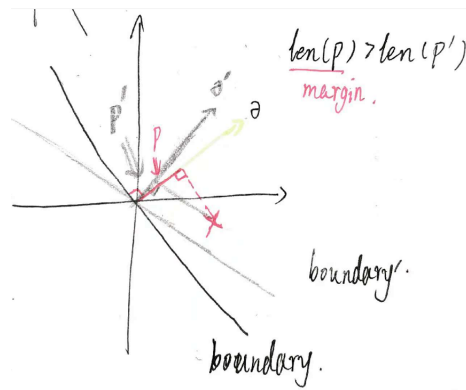 len(p) > len(p')
margin.
p'
p
∂'
∂
boundary'.
boundary.